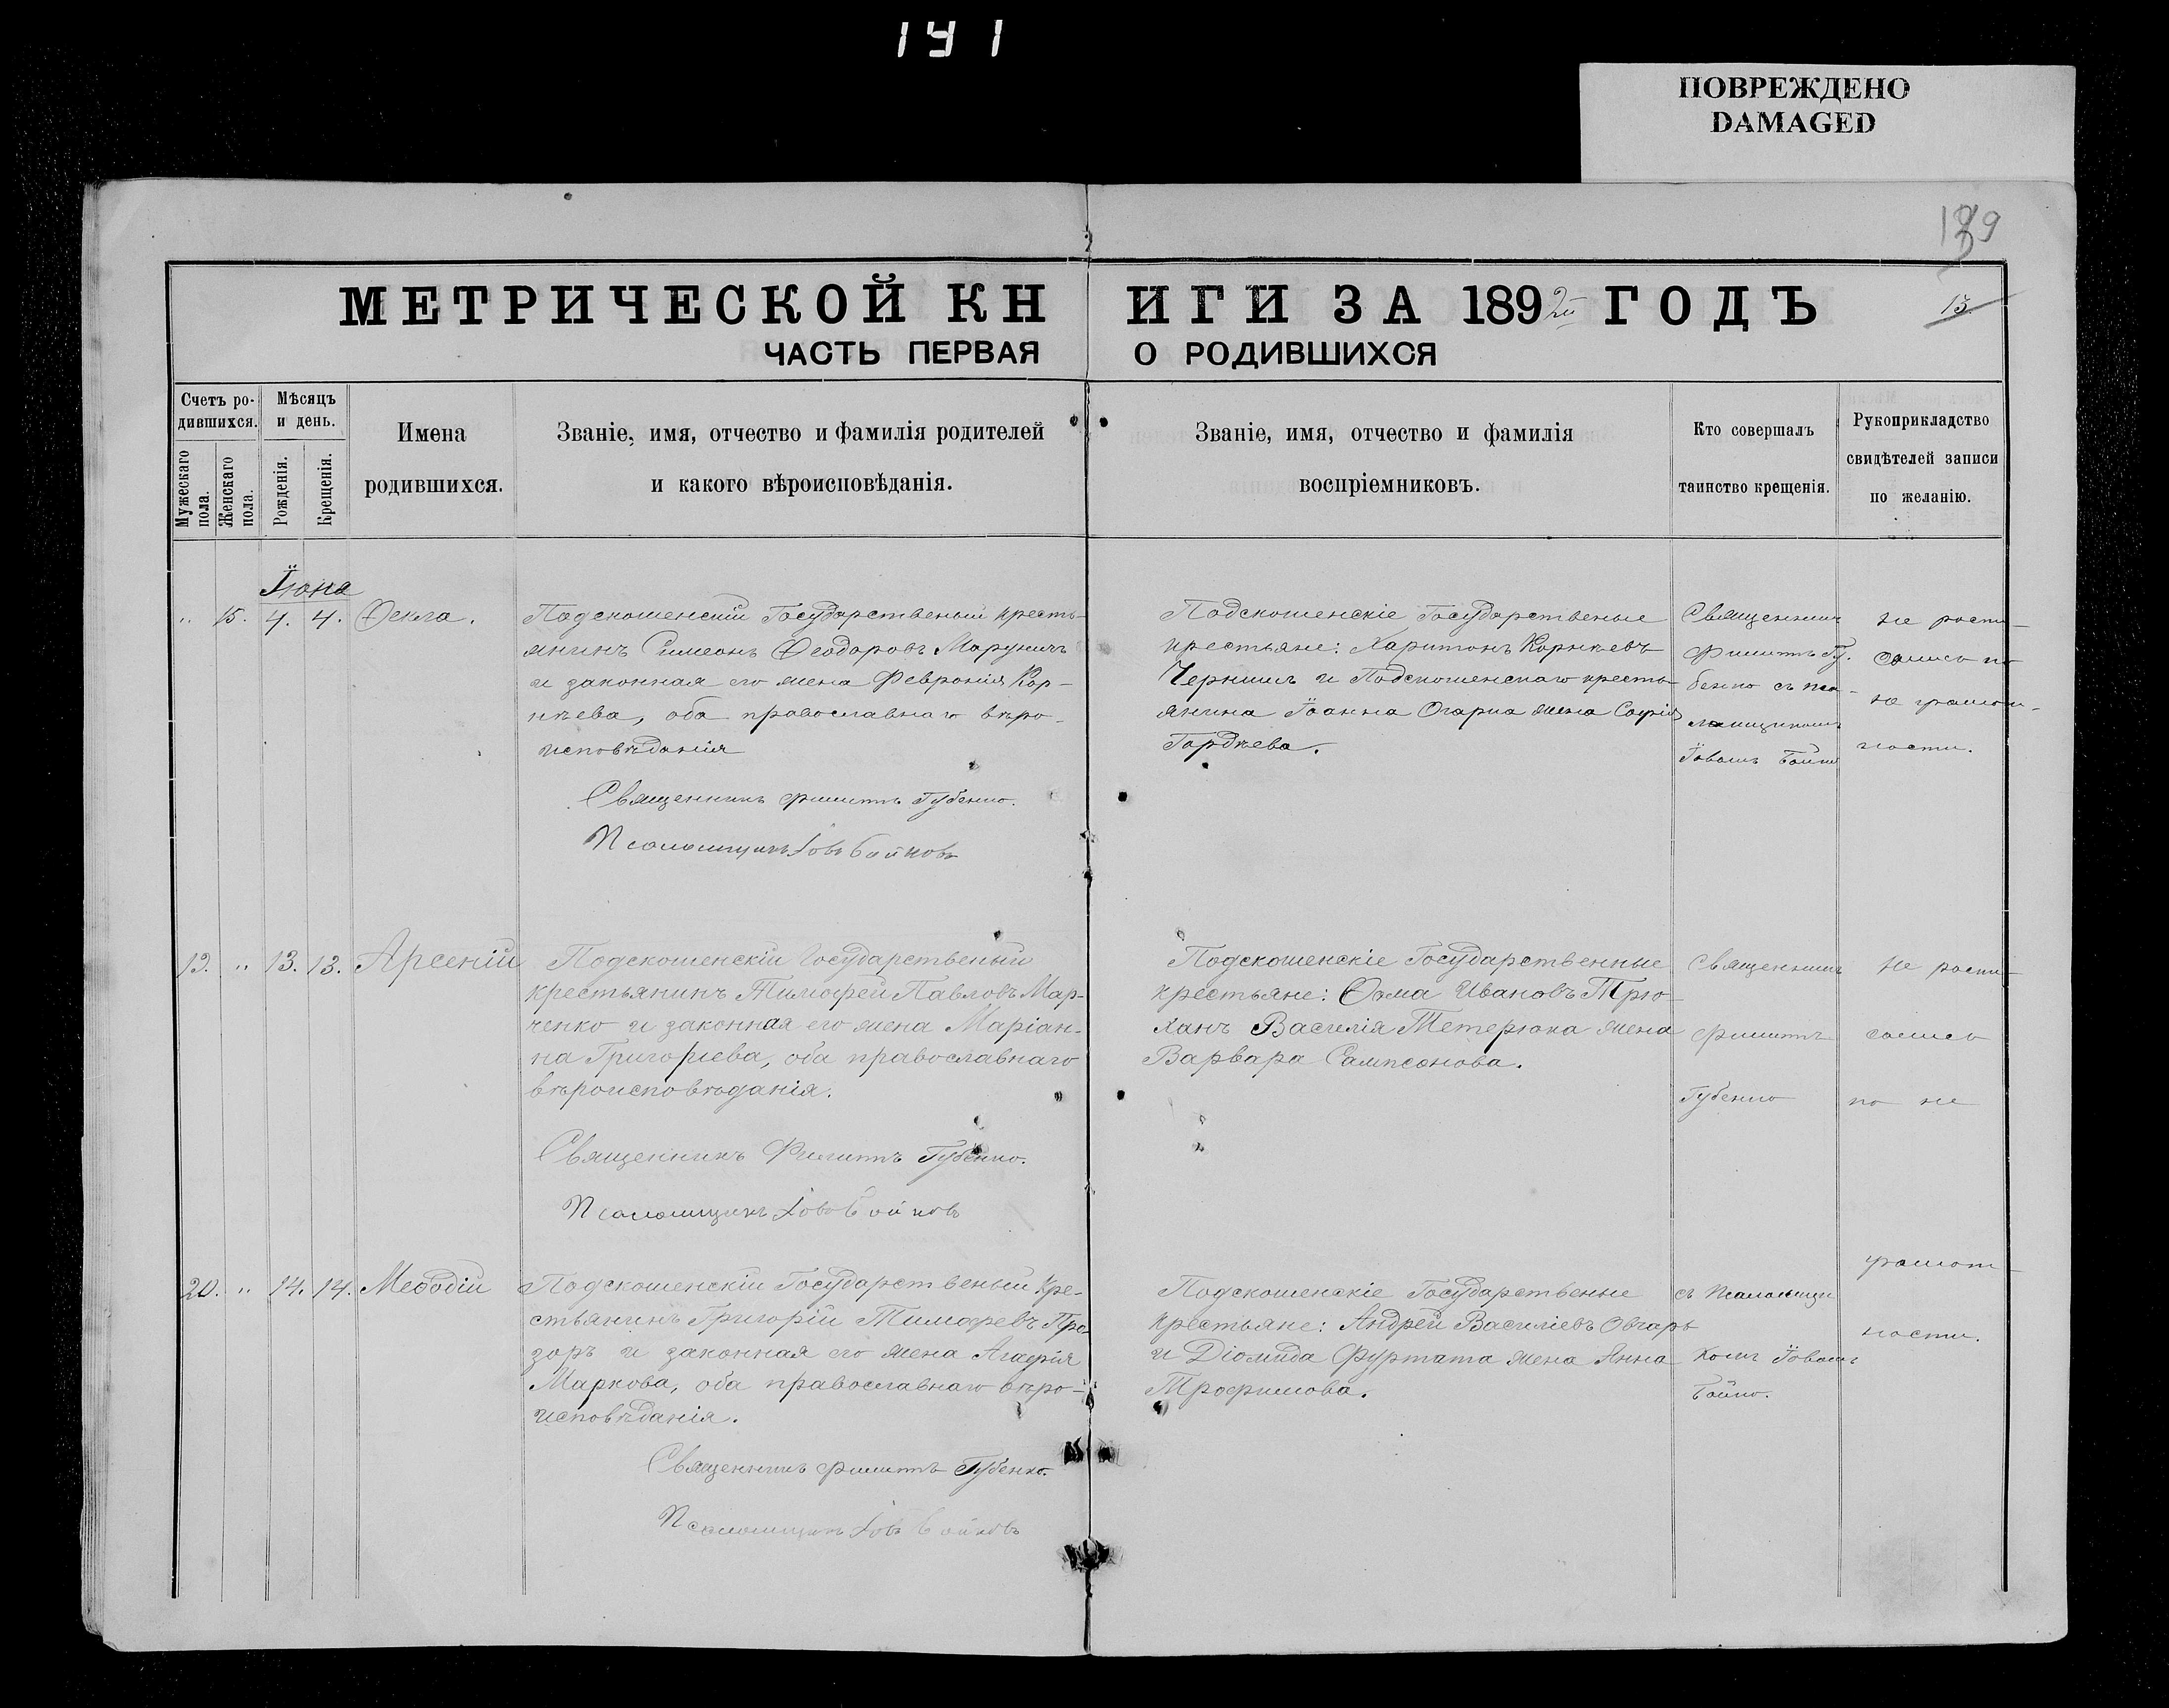 141
ПОВРЕЖДЕНО
DAMAGED
139
МЕТРИЧЕСКОЙ КНИГИ ЗА 1892й ГОДЪ
13.
ЧАСТЬ ПЕРВАЯ О РОДИВШИХСЯ
Счетъ родившихся.
Мужескаго пола.
Женскаго пола.
Мѣсяцъ и день.
Рожденія.
Крещенія.
Имена
родившихся.
Званіе, имя, отчество и фамилія родителей
и какого вѣроисповѣданія.
Званіе, имя, отчество и фамилія
воспріемниковъ.
Кто совершалъ
таинство крещенія.
Рукоприкладство
свидѣтелей записи
по желанію.
Іюня
" 15. 4. 4. Ѳекла.
Подскошенскій Государственый кресть-
янинъ Симеонъ Ѳеодоровъ Марунич
и законная его жена Февронія Кор-
нѣева, оба православнаго вѣро-
исповѣданія
Священникъ Филиппъ Губенко.
Псаломщикъ Іовъ Бойковъ
Подскошенскіе Государственые
крестьяне: Харитонъ Корнѣевъ
Чернишъ и Подскошенскаго кресть-
янина Іоанна Огарка жена Софія
Гордѣева.
Священникъ
Филиппъ Гу-
бенко съ пса-
ломщикомъ
Іовомъ Бойко
не роспи-
сались по
не грамот-
ности.
19. " 13. 13. Арсеній
Подскошенскій Государственый
крестьянинъ Тимофей Павловъ Мар-
ченко и законная его жена Маріан-
на Григоріева, оба православнаго
вѣроисповѣданія.
Священникъ Филиппъ Губенко.
Псаломщикъ Іовъ Бойковъ
Подскошенскіе Государственные
крестьяне: Ѳома Ивановъ Трю-
ханъ Василія Тетерюка жена
Варвара Сампсонова.
Священникъ
Филиппъ
Губенко
не роспи-
сались
по не
20. " 14. 14. Меѳодій
Подскошенскій Государственый кре-
стьянинъ Григорій Тимофеевъ Про-
зоръ и законная его жена Агафія
Маркова, оба православнаго вѣро-
исповѣданія.
Священникъ Филиппъ Губенко.
Псаломщикъ Іовъ Бойковъ
Подскошенскіе Государственые
крестьяне: Андрей Василіевъ Овчарь
и Діомида Фуртата жена Анна
Трофимова.
съ Псаломщи
комъ Іовомъ
Бойко.
грамот-
ности.